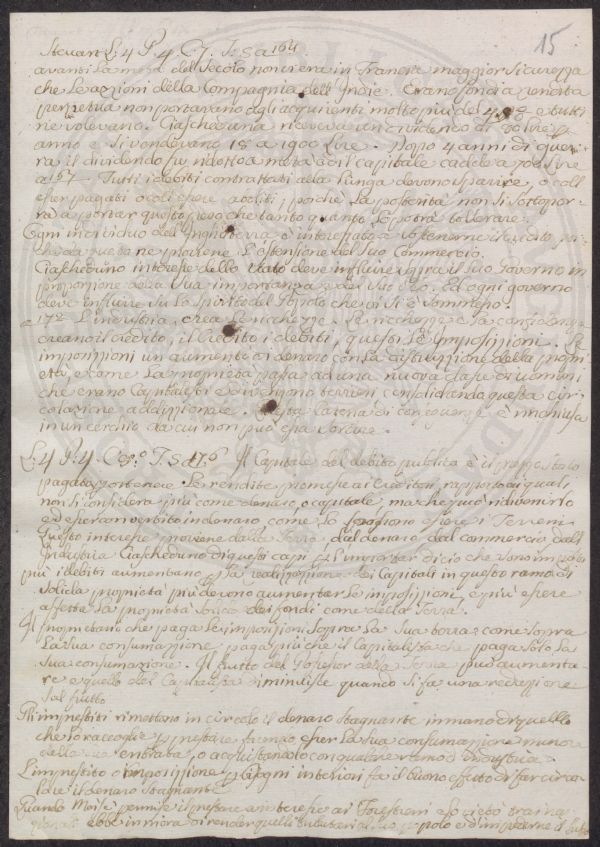 15
Stevart L. 4 P. 4 C. 7. T. 5 a 164
avanti la metà del secolo non vi era in Francia maggior sicurezza
che le azioni della Compagnia dell Indie. Erano fondi a rendita
perpetua non portavano agli acquirenti molto più del 4 e tutti
ne volevano. Ciascheduna riceveva un dividendo di
anno e si vendevano 18 a 1900 Lire. Dopo 4 anni di guer
ra il dividendo fu ridotto a metà ed il capitale cadde a
a 157 - Tutti i debiti contrattati alla lunga devono sparire, o coll
esser pagati o coll essere aboliti, perchè la posterità non si sottopor
rà a portar questo peso che tanto quanto lo potrà tollerare.
Ogni individuo dell Inghilterra è interessato a sostenerne il credito
che da questa ne proviene l'estensione del suo Commercio.
Ciascheduno interesse dello stato deve influire sopra il suo governo in
proporzione della sua importanza e del suo Ed ogni governo
deve influire su lo spirito del Popolo che gli è sommesso.
172 L'industria crea le ricchezze. Le ricchezze e
creano il credito, il credito i debiti, questi le imposizioni. Le
imposizioni un aumento di denaro con la distruzione della propri
età, e come la proprietà passa ad una nuova classe di uomini
che erano Capitalisti e divengono terrieri consolidando questa cir
colazione addizionale. Questa catena di conseguenze è rinchiusa
in un cerchio da cui non può essa sortire.
L. 4 P. 4 C. 8° T. 5 d 176 Il Capitale del debito pubblico è il prezzo
pagato Le rendite promesse ai Creditori rapporto ai quali
non si considera più come denaro o capitale, ma che può ridivenirlo
ed esser convertito in denaro come lo possono essere i Terreni
Questo interesse proviene dalla terra, dal denaro, dal commercio dall
Industria Ciascheduno di questi capi
più i debiti aumentano, la realizzazione dei Capitali in questo ramo di
solida proprietà più devono aumentar le imposizioni, e più essere
affetta la proprietà solida dei fondi come della Terra.
Il proprietario che paga le imposizioni sopra la sua terra come sopra
la sua consumazione, paga più che il Capitalista che paga solo la
sua consumazione. Il frutto del possessor della Terra può aumenta
re e quello del Capitalista diminuisce quando si fa una reduzione
sul frutto
Gli imprestiti rimettono in circolo il denaro stagnante in mano di quello
che lo raccoglie esser la sua consumazione minore
della sua entrata, o acquistandolo con qualche ramo d'industria
L'imprestito e imposizione pagar interessi fa il buono effetto di far circo
lare il denaro stagnante
Quando Moisè permise il prestare a interesse ai Forestieri e lo vietò tra i na
zionali ebbe in mira di render quelli tributari al suo popolo e d'impedirne il